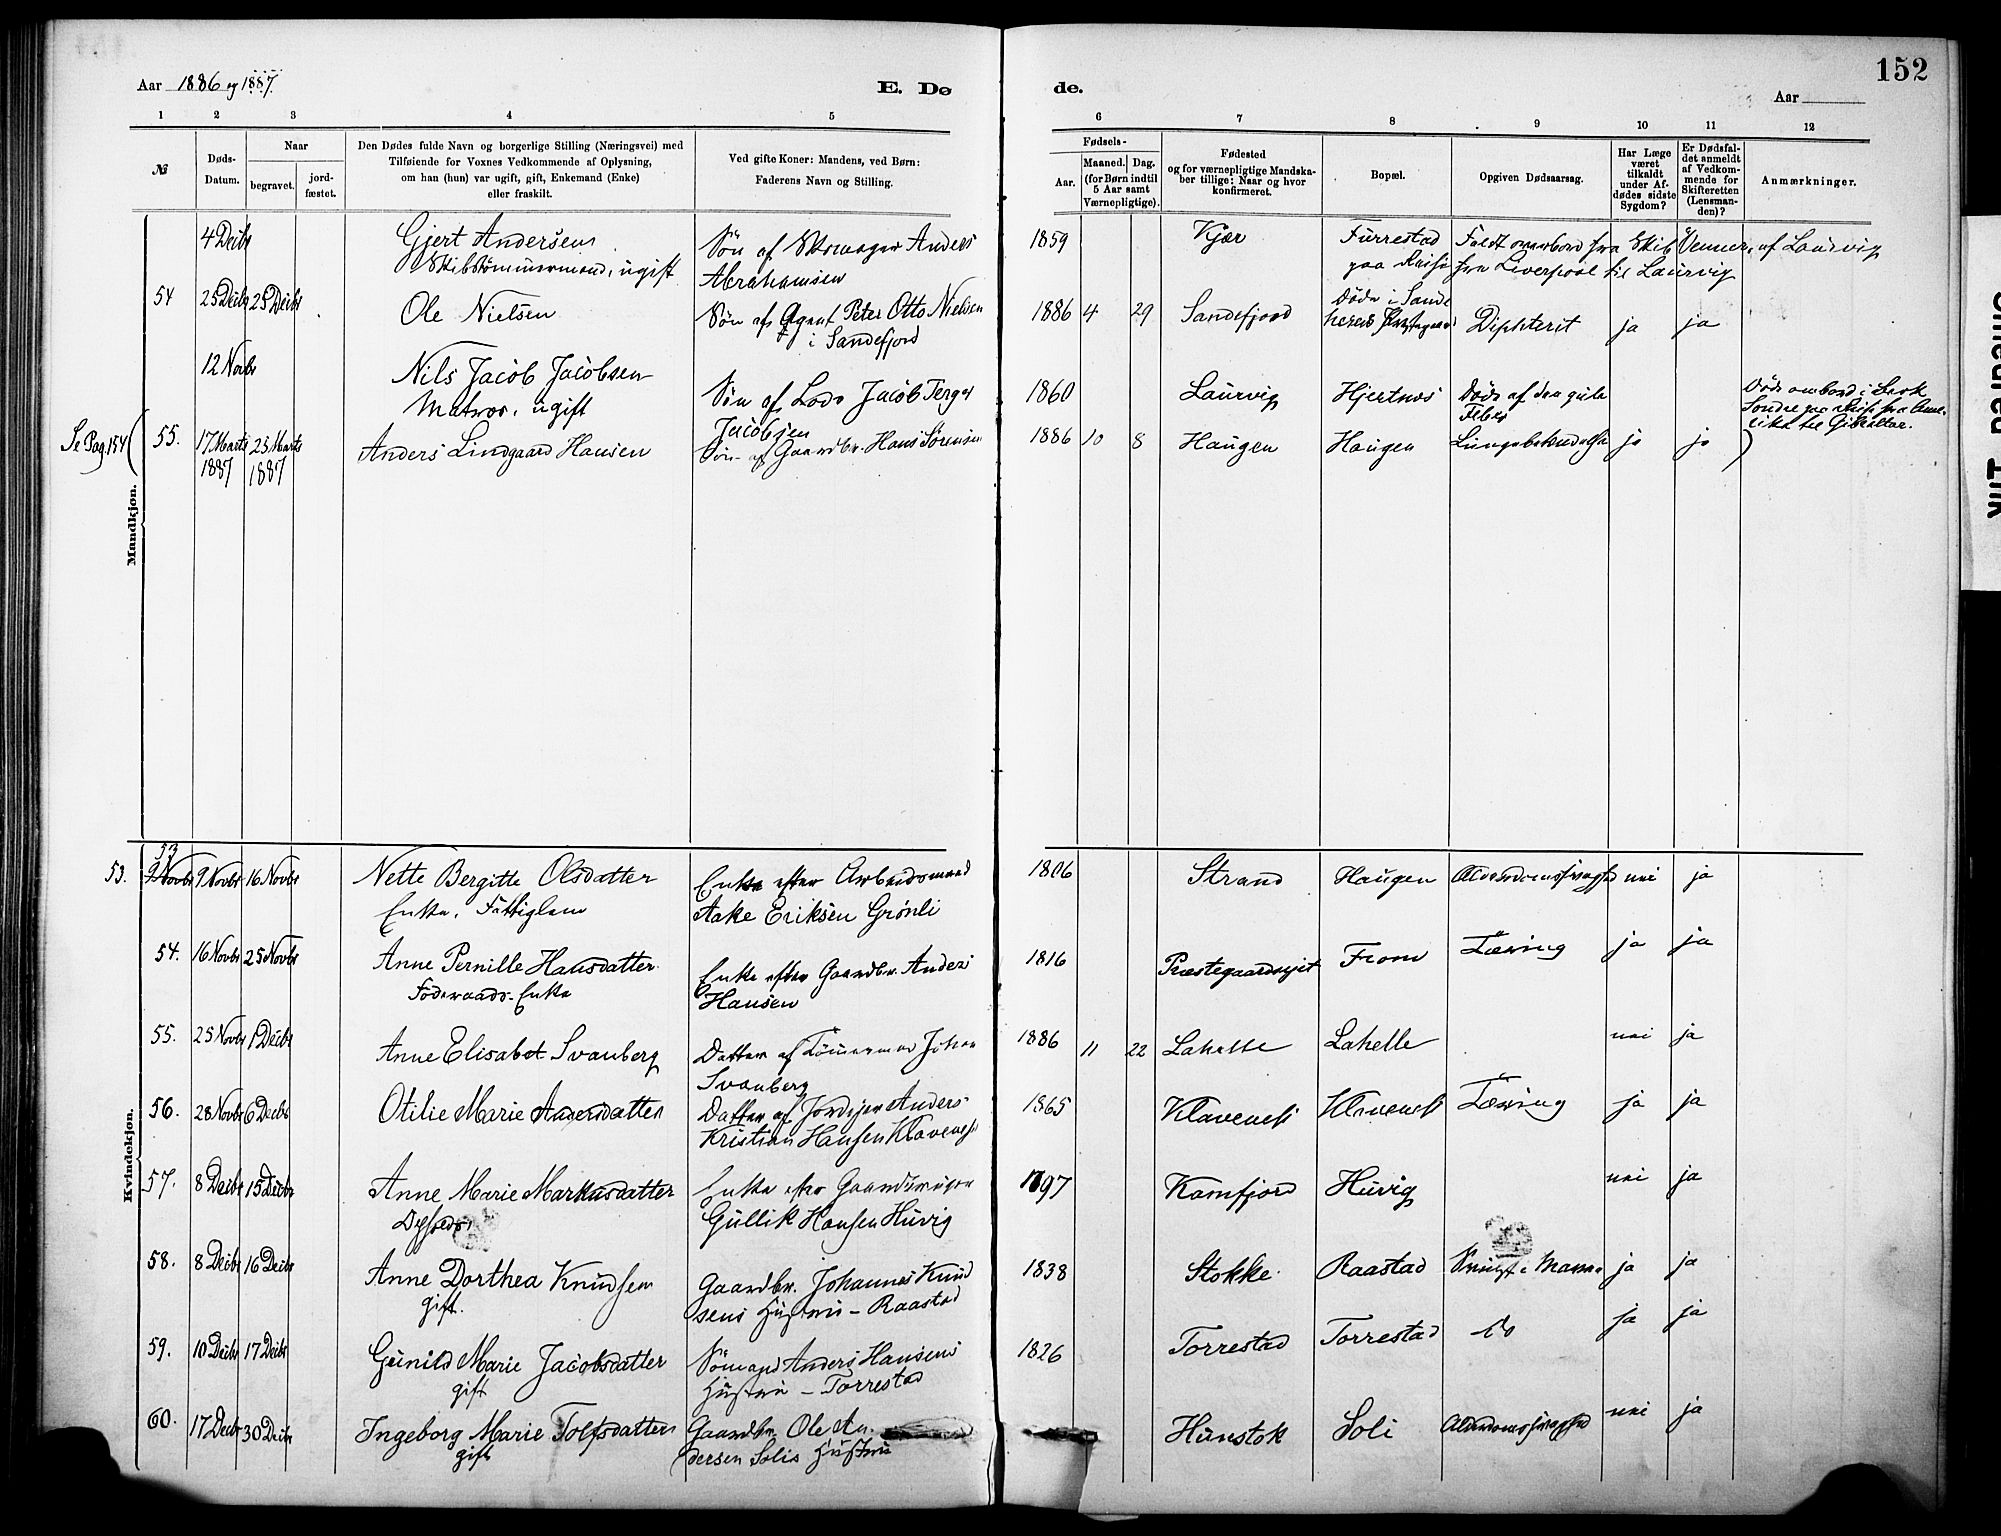 152
Aar 1886 og 1887.
E. Dø de.
Aar
1 2 3 4 5 6 7 8 9 10 11 12
№
Døds-Datum.
Naar
begravet.
jord-fæstet.
Den Dødes fulde Navn og borgerlige Stilling (Næringsvei) med
Tilføiende for Voxnes Vedkommende af Oplysning,
om han (hun) var ugift, gift, Enkemand (Enke)
eller fraskilt.
Ved gifte Koner: Mandens, ved Børn:
Faderens Navn og Stilling.
Fødsels-
Aar.
Maaned. Dag.
(for Børn indtil
5 Aar samt
Værnepligtige).
Fødested
og for værnepligtige Mandska-
ber tillige: Naar og hvor
konfirmeret.
Bopæl.
Opgiven Dødsaarsag.
Har Læge
været
tilkaldt
under Af-
dødes sidste
Sygdom?
Er Dødsfal-
det anmeldt
af Vedkom-
mende for
Skifteretten
(Lensman-
den)?
Anmærkninger.
Mandkjøn.
4 Decbr Gjert Andersen Søn af Anders 1859 Kjær Furrestad Faldt overbord fra Skib Venner, af Laurvig
Skibstømmermand, ugift Abrahamsen paa Reise fra Liverpool til Laurvig
54 25 Decbr 25 Decbr Ole Nielsen Søn af Agent Peter Otto Nielsen 1886 4 29 Sandefjord Døde i Sande Diphterit ja ja
i Sandefjord
12 Novbr Nils Jacob Jacobsen Søn af Lods Jacob Terger 1860 Laurvig Hjertnes Døde af den gule Døde ombord i Bark
Matros, ugift Jacobsen Feber
til Gibraltar.
Se Pag. 154 ( 55. 17 Marts 25 Marts Anders Lindgaard Hansen Søn af Gaardbr. Hans Sørensen 1886 10 8 Haugen Haugen Lungebetændelse ja ja )
1887 1887
Kvindekjøn.
53
53. 9 Novbr 9 Novbr 16 Novbr Nette Bergitte Olsdatter Enke efter Arbeidsmand 1806 Strand Haugen Alderdomssvaghed nei ja
Enke. Fattiglem Aake Eriksen Grönli
54. 16 Novbr 25 Novbr Anne Pernille Hansdatter Enke efter Gaardbr. Anders 1816 Præstegaardsejet From Tæring ja ja
Föderaads-Enke Hansen
55. 25 Novbr 1 Decbr Anne Elisabet Svanberg Datter af Tömmermd Johan 1886 11 22 Lahelle Lahelle nei ja
Svanberg
56. 28 Novbr 6 Decbr Otilie Marie Andersdatter Datter af Jordejer Anders 1865 Klavenes Klavenes Tæring ja ja
Kristian Hansen Klavenes
57. 8 Decbr 15 Decbr Anne Marie Markusdatter Enke efter Gaardbruger 1797 Kamfjord Huvig nei ja
Gullik Hansen Huvig
58. 8 Decbr 16 Decbr Anne Dorthea Knudsen Gaardbr. Johannes Knud 1838 Stokke Raastad Kræft i Maven ja ja
gift. sens Hustru – Raastad
59. 10 Decbr 17 Decbr Gunild Marie Jacobsdatter Sömand Anders Hansens 1826 Torrestad Torrestad do ja ja
gift Hustru – Torrestad
60. 17 Decbr 30 Decbr Ingeborg Marie Tolfsdatter Gaardbr. Ole An- Hunstok Soli Alderdomssvaghed nei ja
gift dersen Solis Hustru